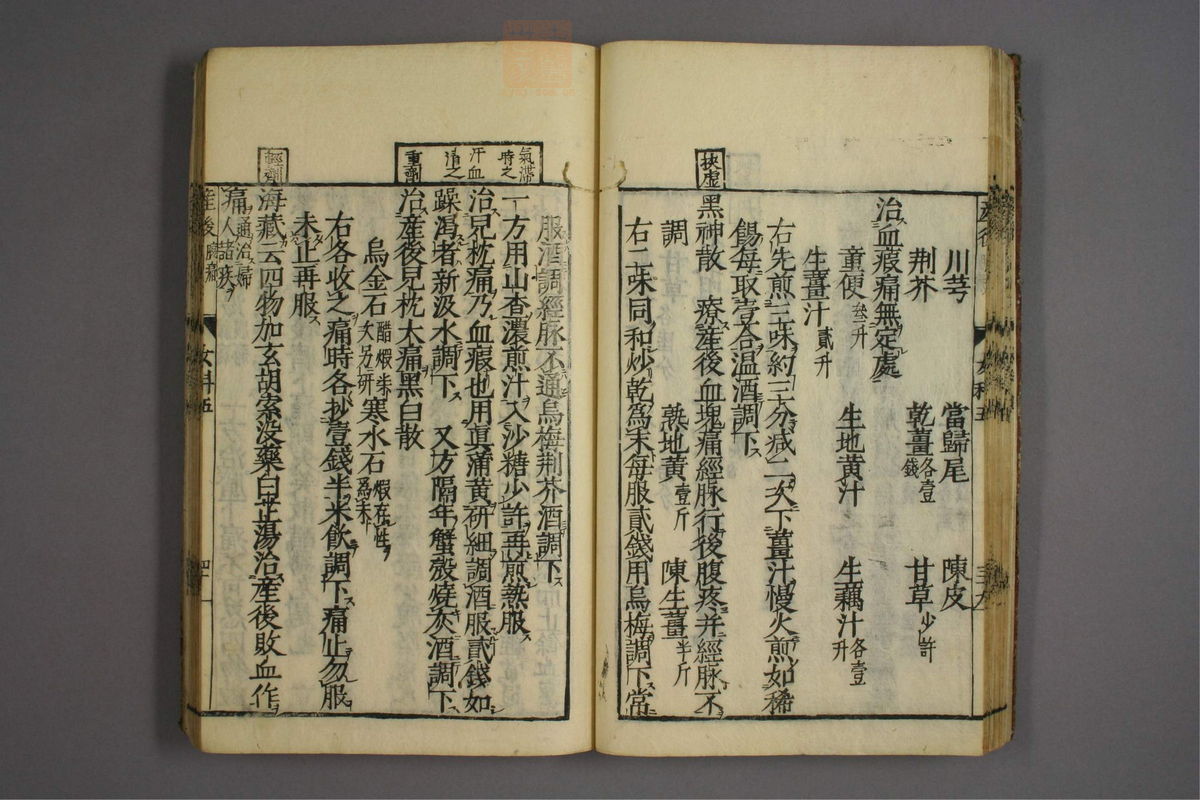 川芎　當歸尾　陳皮
荆芥　乾薑各壹錢　甘草少許
治血瘕痛無定處
童便叁升　生地黄汁　生藕汁各壹升
生薑汁貳升
右先煎三味約三分減二次下薑汁慢火煎如稀
餳每取壹合温酒調下
扶虚
黑神散　療産後血塊痛經脉行後腹疼并經脉不
調　熟地黄壹斤　陳生薑半斤
右二味同和炒乾為末每服貳錢用烏梅調下常
服酒調經脉不通烏梅荆芥酒調下
氣滯
時之
汗血
清之
一方用山査濃煎汁入沙糖少許再煎熱服
治兒枕痛乃血瘕也用真蒲黄研細調酒服貳錢如
躁渴者新汲水調下　又方隔年蟹殻燒灰酒調下
重劑
治産後兒枕大痛黑白散
烏金石醋煆朱次另研　寒水石煆存性為末
右各收之痛時各抄壹錢半米飲調下痛止勿服
未止再服
輕劑
海藏云四物加玄胡索没藥白芷湯治産後敗血作
痛通治婦人諸疾
産後腹痛　女科五　四十
女科五